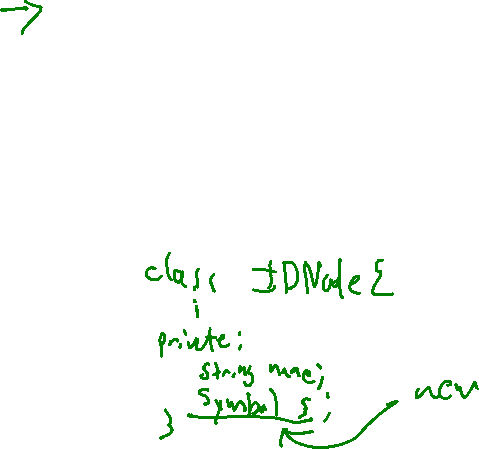 class IDNode {
:
private:
string name;
Symbol s;
}
new